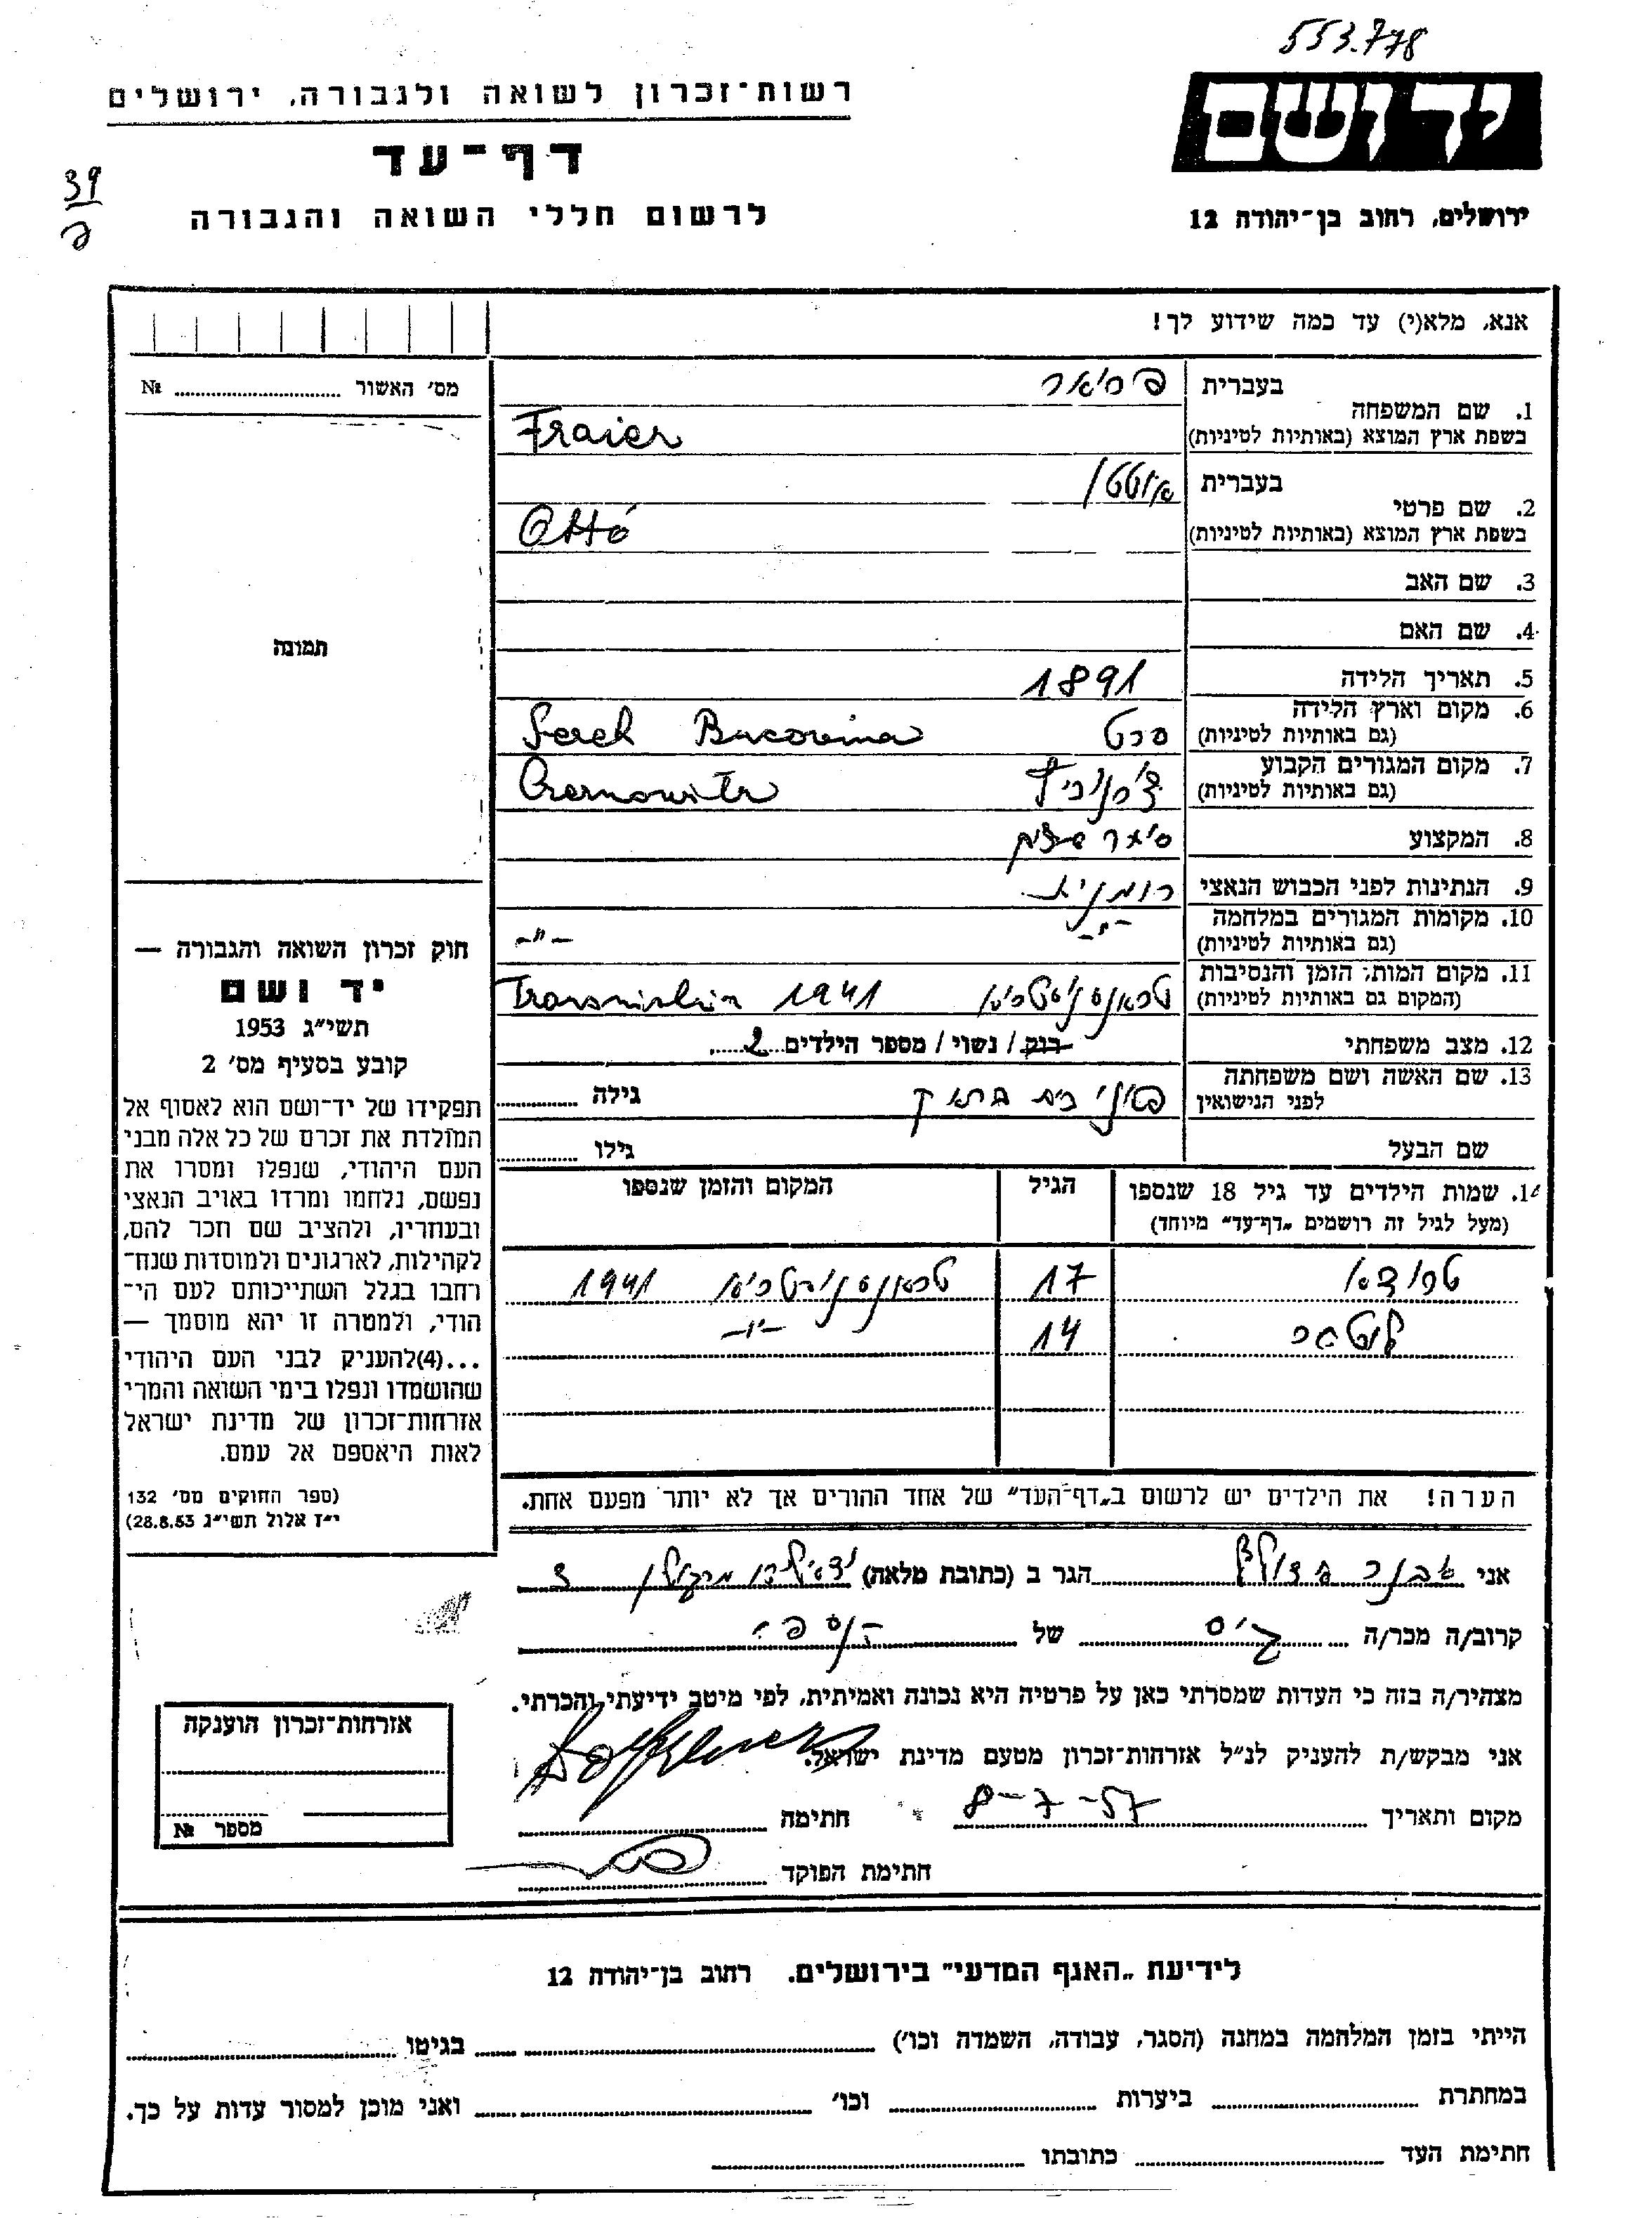 553.778
ידושם
ירושלים, רחוב בן־יהודה 12
רשות־זכרון לשואה ולגבורה, ירושלים
דף־עד
לרשום חללי השואה והגבורה
39
אנא, מלא(י) עד כמה שידוע לך!
מס׳ האשור № 
בעברית
1. שם המשפחה
בשפת ארץ המוצא (באותיות לטיניות)
Fraier
בעברית אוטטו
2. שם פרטי
בשפת ארץ המוצא (באותיות לטיניות)
Ottó
3. שם האב
4. שם האם
5. תאריך הלידה 1891
6. מקום וארץ הלידה
(גם באותיות לטיניות) סרט Bucovina
7. מקום המגורים הקבוע
(גם באותיות לטיניות) Czernowitz
8. המקצוע
9. הנתינות לפני הכבוש הנאצי רומניא
10. מקומות המגורים במלחמה
(גם באותיות לטיניות) -״- -״-
11. מקום המות, הזמן והנסיבות
(המקום גם באותיות לטיניות) טראנסניסטריא 1941
12. מצב משפחתי רווק / נשוי / מספר הילדים 2
13. שם האשה ושם משפחתה
לפני הנישואין גילה
שם הבעל גילו
14. שמות הילדים עד גיל 18 שנספו הגיל המקום והזמן שנספו
(מעל לגיל זה רושמים „דף־עד״ מיוחד)
17 טראנסניסטריא 1941
14 -״-
הערה! את הילדים יש לרשום ב„דף־העד״ של אחד ההורים אך לא יותר מפעם אחת.
תמונה
חוק זכרון השואה והגבורה —
יד ושם
תשי״ג 1953
קובע בסעיף מס׳ 2
תפקידו של יד־ושם הוא לאסוף אל
המולדת את זכרם של כל אלה מבני
העם היהודי, שנפלו ומסרו את
נפשם, נלחמו ומרדו באויב הנאצי
ובעוזריו, ולהציב שם וזכר להם,
לקהילות, לארגונים ולמוסדות שנח־
רבו בגלל השתייכותם לעם הי־
הודי, ולמטרה זו יהא מוסמך —
...(4)להעניק לבני העם היהודי
שהושמדו ונפלו בימי השואה והמרי
אזרחות־זכרון של מדינת ישראל
לאות היאספם אל עמם.
(ספר החוקים מס׳ 132
י״ז אלול תשי״ג 28.8.53)
אני הגר ב (כתובת מלאה)
קרוב/ה מכר/ה גיס של
מצהיר/ה בזה כי העדות שמסרתי כאן על פרטיה היא נכונה ואמיתית, לפי מיטב ידיעתי והכרתי.
אני מבקש/ת להעניק לנ״ל אזרחות־זכרון מטעם מדינת ישראל.
מקום ותאריך 8-7-57 חתימה
חתימת הפוקד
אזרחות־זכרון הוענקה
מספר №
לידיעת „האגף המדעי״ בירושלים. רחוב בן־יהודה 12
הייתי בזמן המלחמה במחנה (הסגר, עבודה, השמדה וכו׳) בגיטו
במחתרת ביערות וכו׳ ואני מוכן למסור עדות על כך.
חתימת העד כתובתו